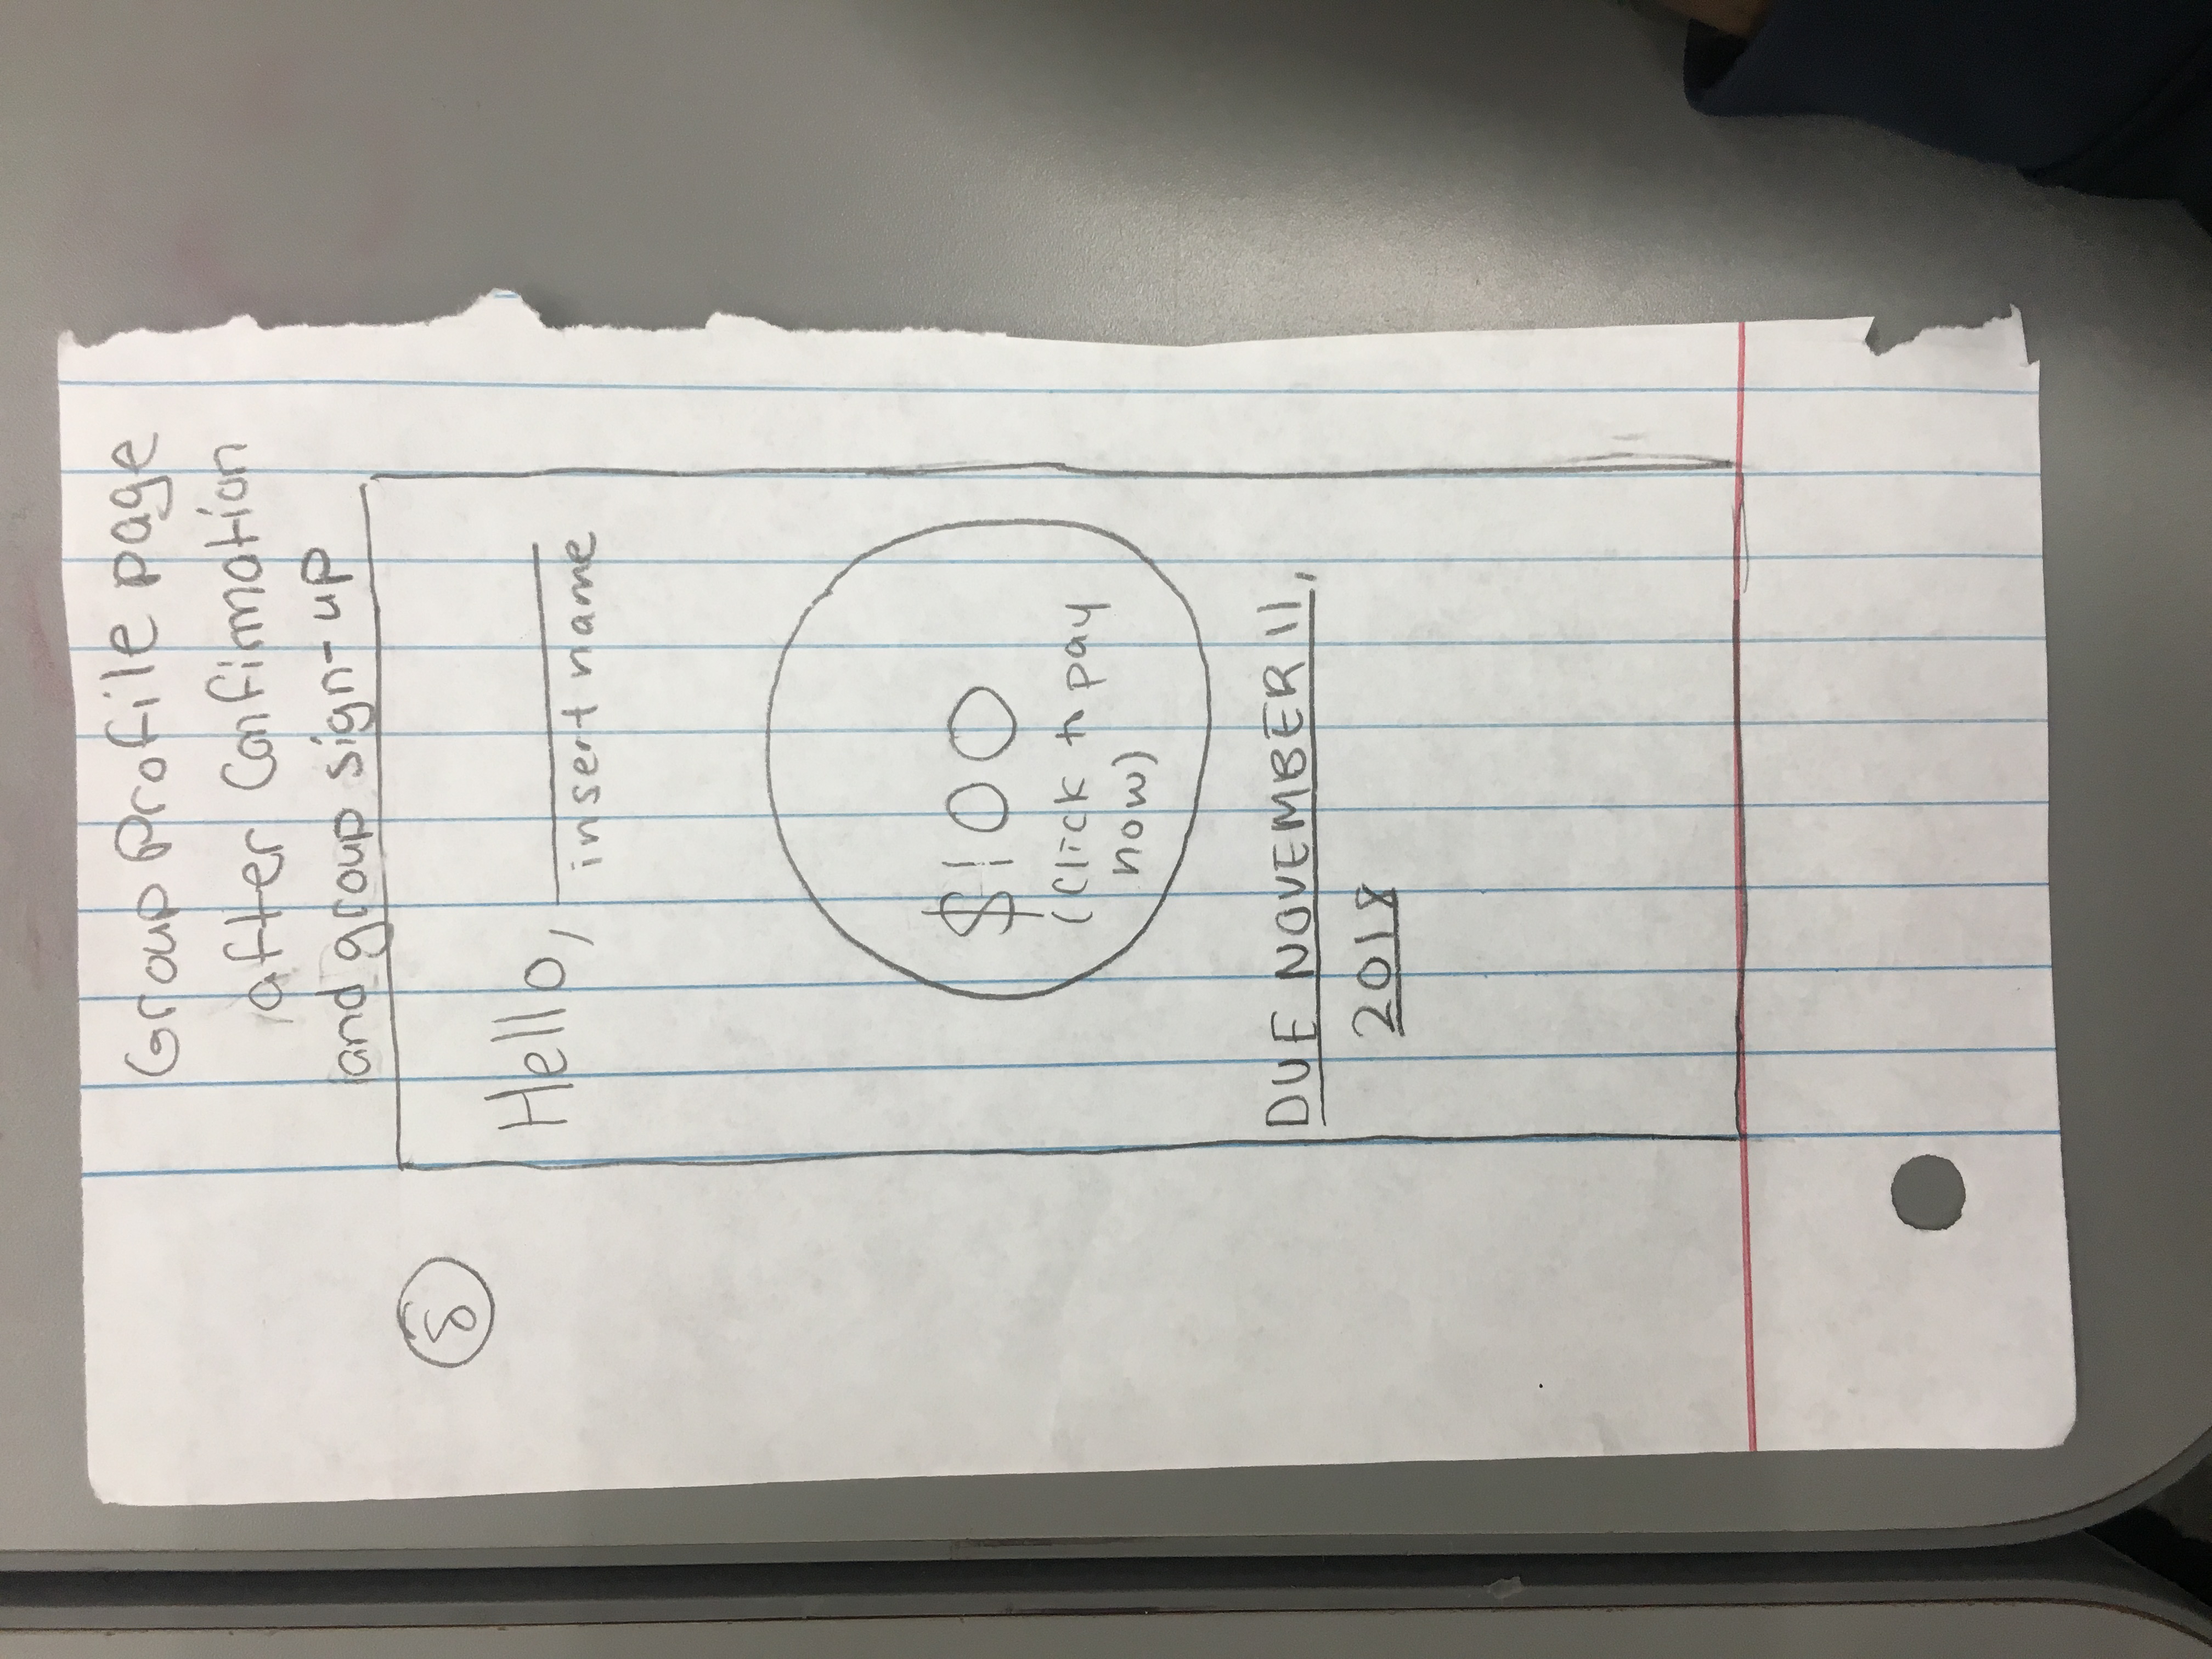 Group Profile page
after Confirmation
and group sign-up
8
Hello, __________
insert name
$100
(Click to pay
now)
DUE NOVEMBER 11,
2018